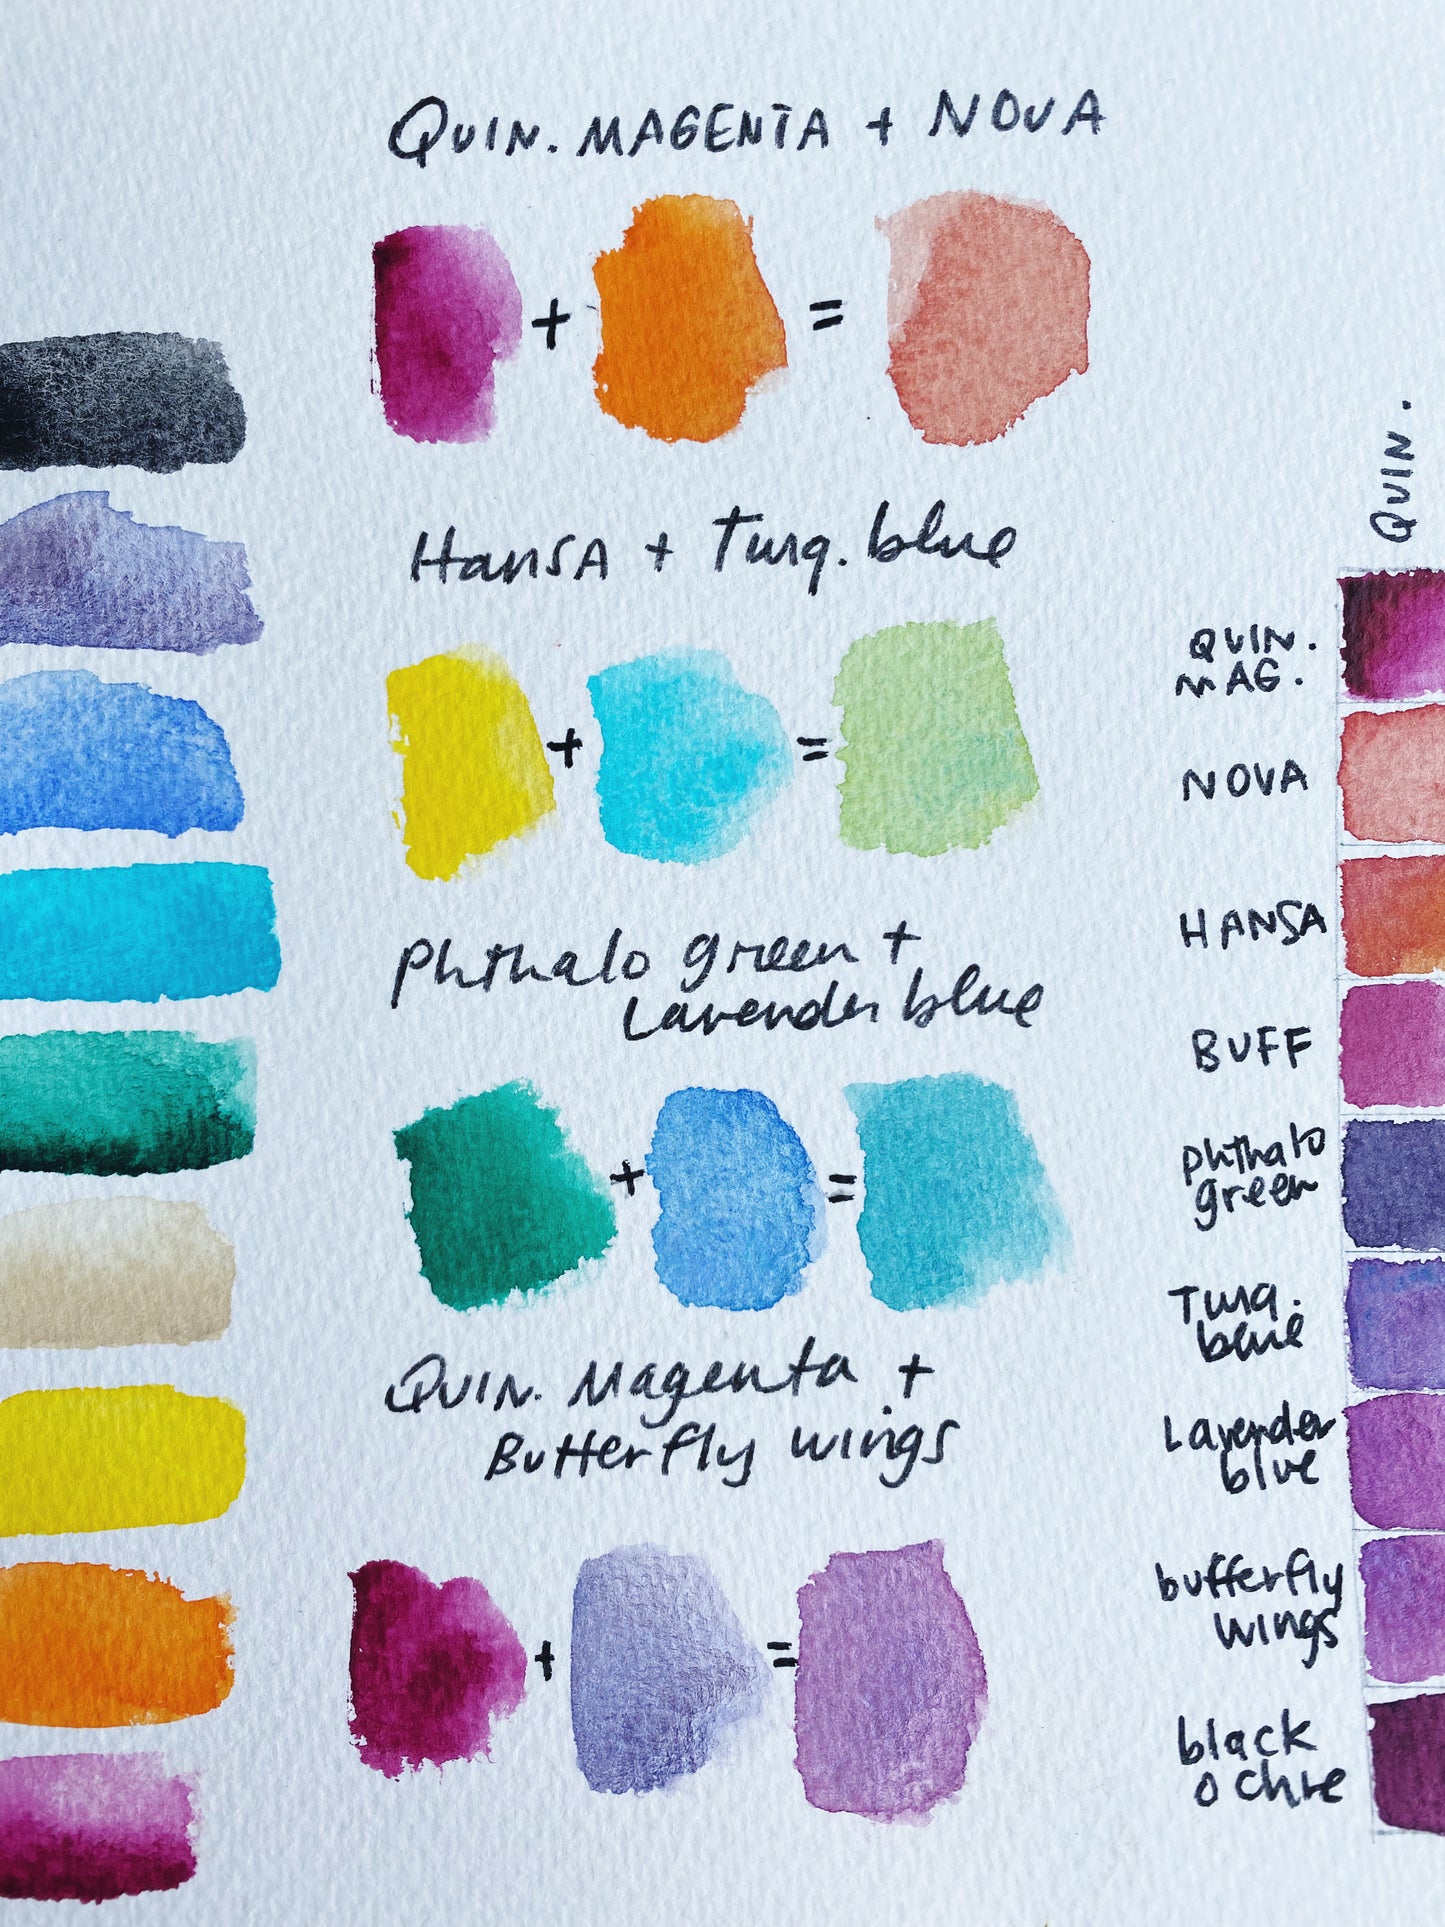 QUIN. MAGENTA + NOVA
+ =
HANSA + Turq. blue
+ =
Phthalo green +
Lavender blue
+ =
QUIN. Magenta +
Butterfly wings
+ =
QUIN.
QUIN.
MAG.
NOVA
HANSA
BUFF
phthalo
green
Turq.
blue
Lavender
blue
butterfly
wings
black
ochre